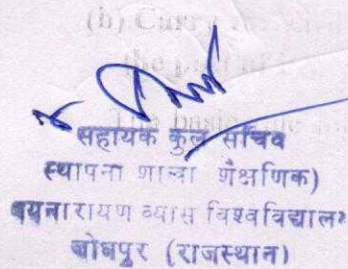 (b) Curr
the p
सहायक कुल सचिव
स्थापना शाखा शैक्षणिक)
जयनारायण व्यास विश्वविद्यालय
जोधपुर (राजस्थान)